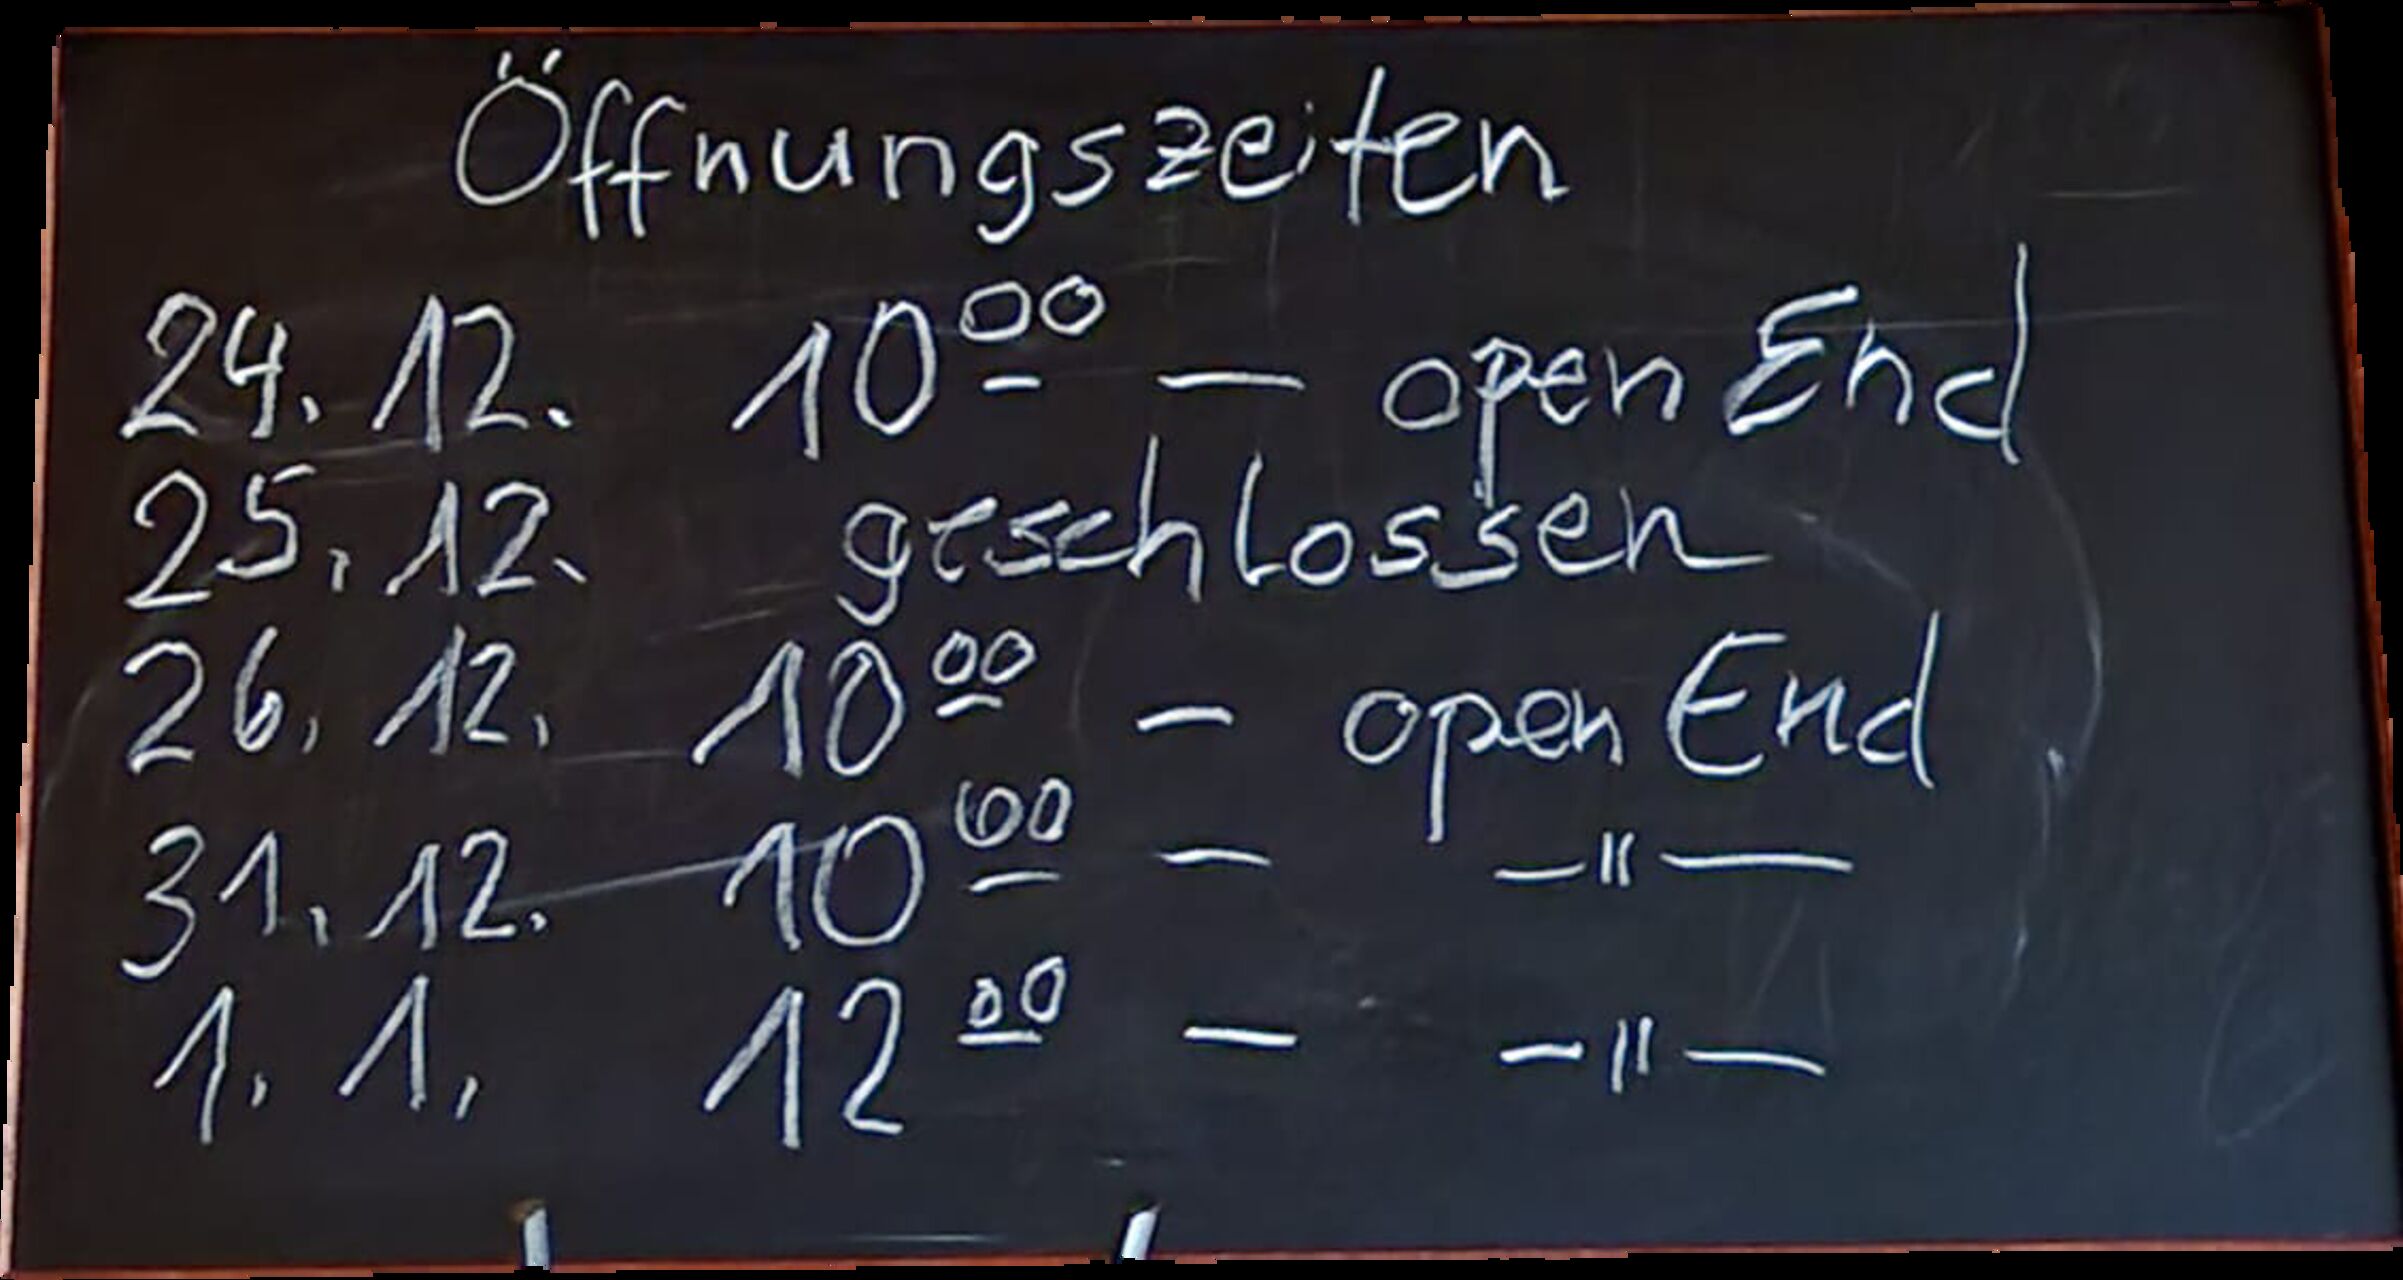 Öffnungszeiten
24. 12. 10⁰⁰ — open End
25. 12. geschlossen
26. 12. 10⁰⁰ — open End
31. 12. 10⁰⁰ — —"—
1. 1. 12⁰⁰ — —"—